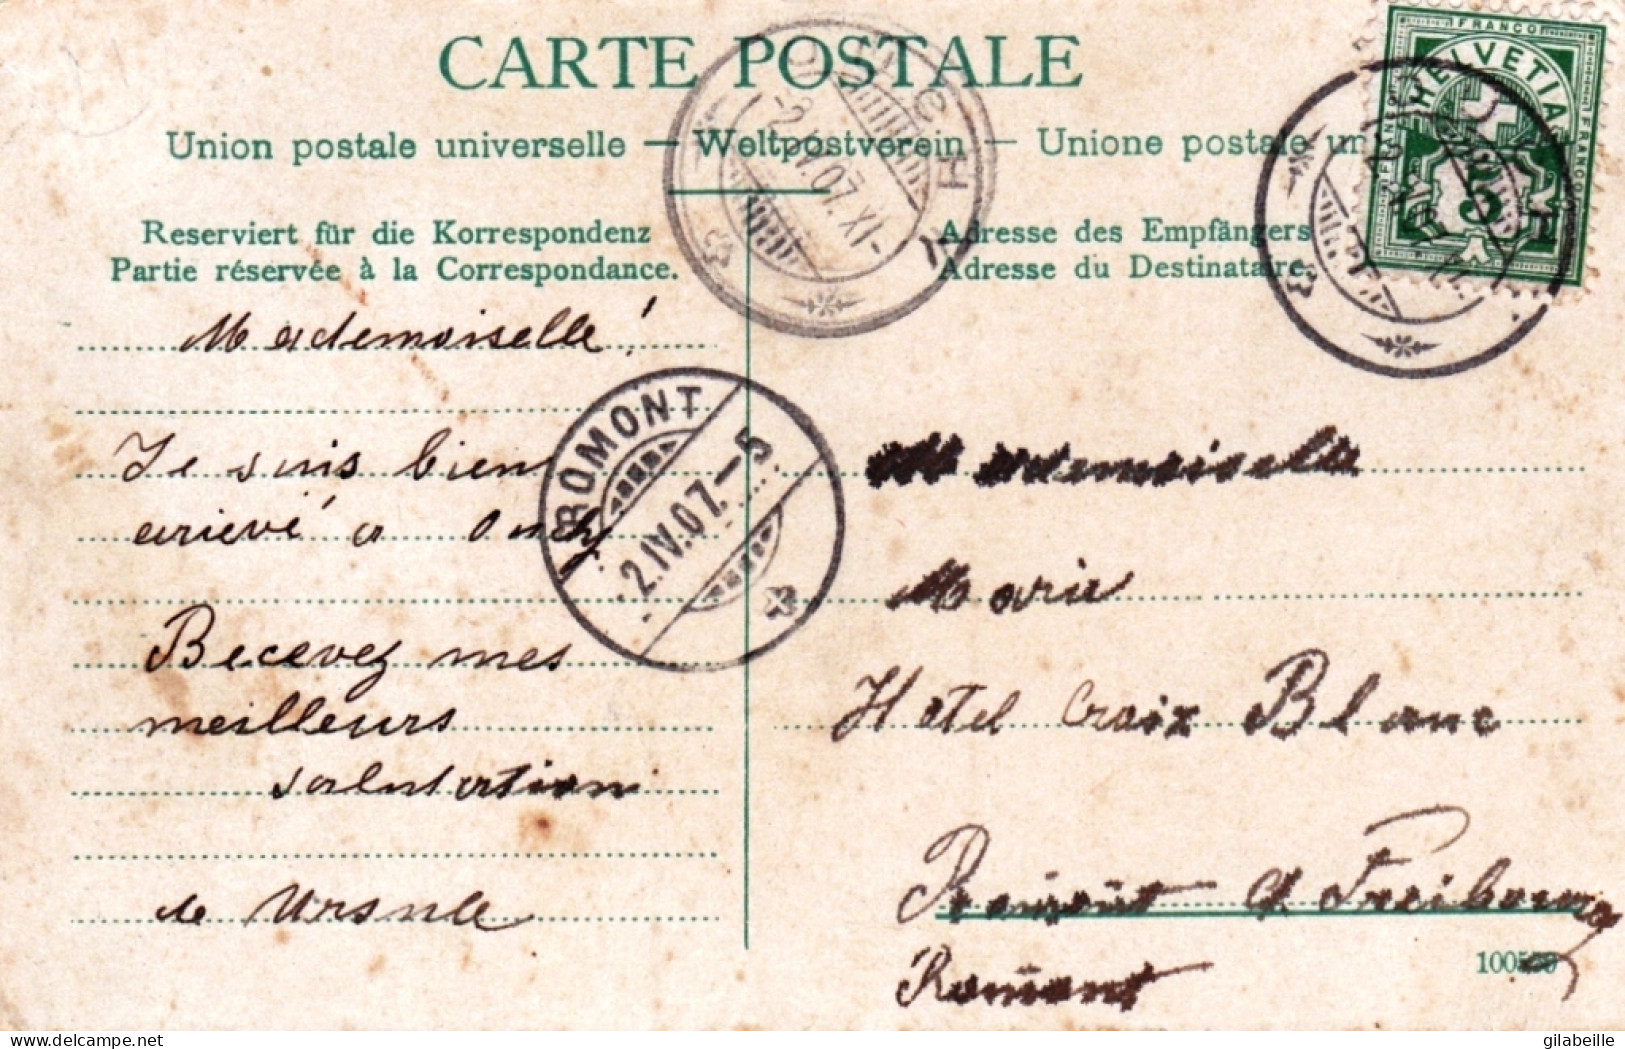 CARTE POSTALE
Union postale universelle — Weltpostverein — Unione postale un
Reserviert für die Korrespondenz
Partie réservée à la Correspondance.
Adresse des Empfängers
Adresse du Destinataire.
FRANCO
HELVETIA
5
ROMONT
2.IV.07.–5
-2.IV.07.XI-
Mademoiselle!
Je suis bien
arievé a Ouchy
Recevez mes
meilleurs
salutation
de Ursule
Mademoiselle
Marie
Hotel Croix Blanc
Romont Ct Freibourg
Romont
delcampe.net
gilabeille